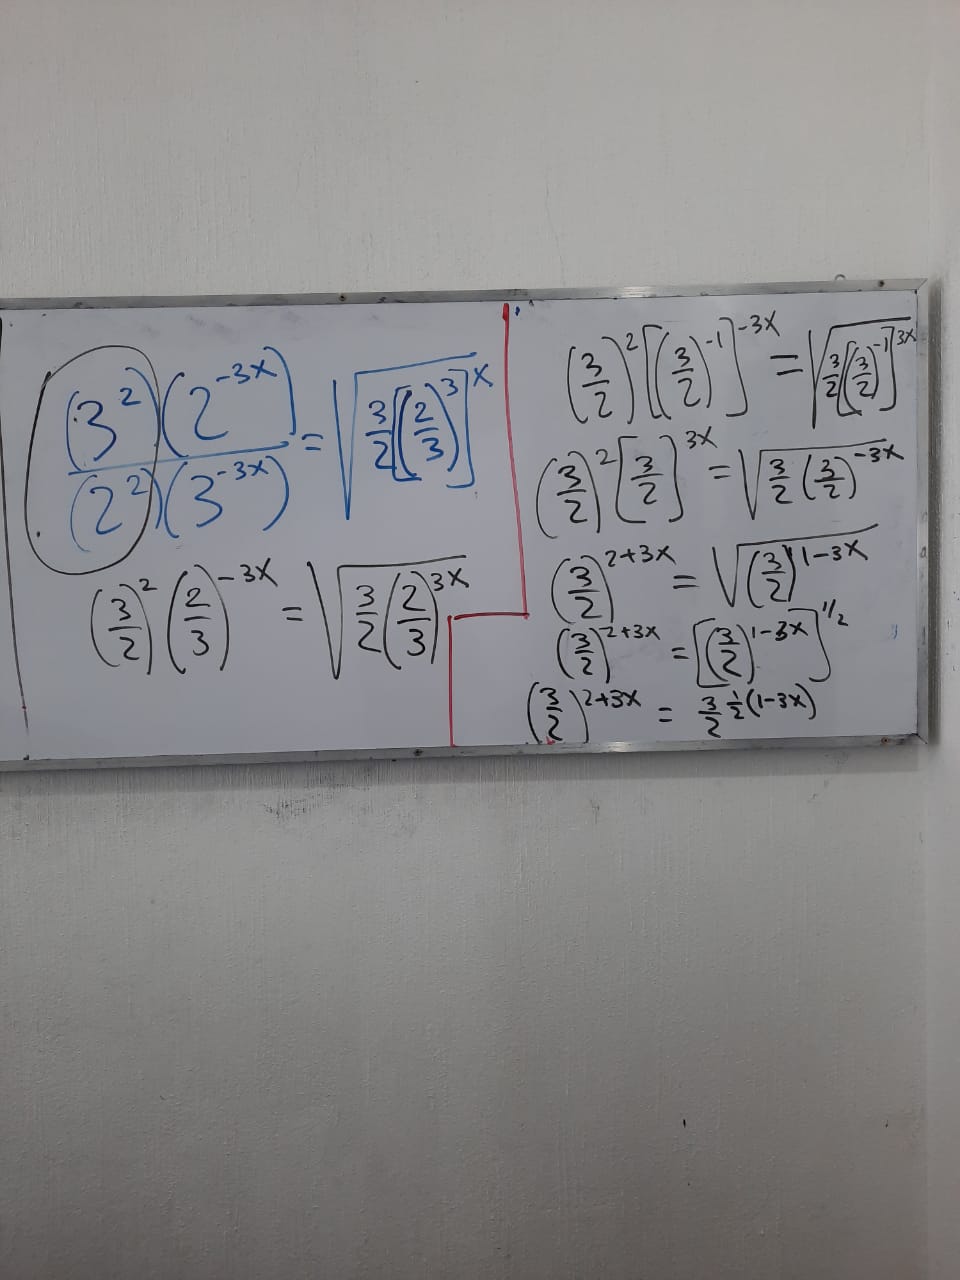 (3²)(2⁻³ˣ) / (2²)(3⁻³ˣ) = √(3/2[(2/3)³]ˣ)
(3/2)² (2/3)⁻³ˣ = √(3/2 (2/3)³ˣ)
(3/2)² [(3/2)⁻¹]⁻³ˣ = √(3/2[(3/2)⁻¹]³ˣ)
(3/2)² [3/2]³ˣ = √(3/2 (3/2)⁻³ˣ)
(3/2)²⁺³ˣ = √((3/2)¹⁻³ˣ)
(3/2)²⁺³ˣ = [(3/2)¹⁻³ˣ]^1/2
(3/2)²⁺³ˣ = 3/2^½(1-3x)